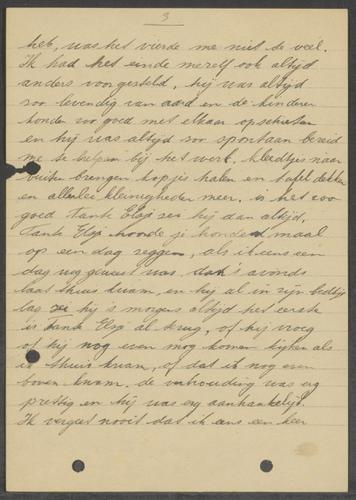 3
heb, was het vierde me niet te veel.
Ik had het einde mezelf ook altijd
anders voorgesteld, hij was altijd
zoo levendig van aard en de kinderen
konden zoo goed met elkaar opschieten
en hij was altijd zoo spontaan bereid
me te helpen bij het werk, kleedtjes naar
buiten brengen kopjes halen en tafel dekken
en allerlei kleinigheden meer, is het zoo
goed Tante Elsje zei hij dan altijd,
Tante Elsje hoorde je honderd maal
op een dag zeggen, als ik eens een
dag weg geweest was, 's avonds
laat thuis kwam, en hij al in zijn bedtje
lag, zei hij 's morgens altijd het eerste
is Tante Elsje al terug, of hij vroeg
of hij nog even mog komen kijken als
ik thuis kwam, of dat ik nog even
boven kwam, de verhouding was erg
prettig en hij was erg aanhankelijk.
Ik vergeet nooit dat ik eens een keer